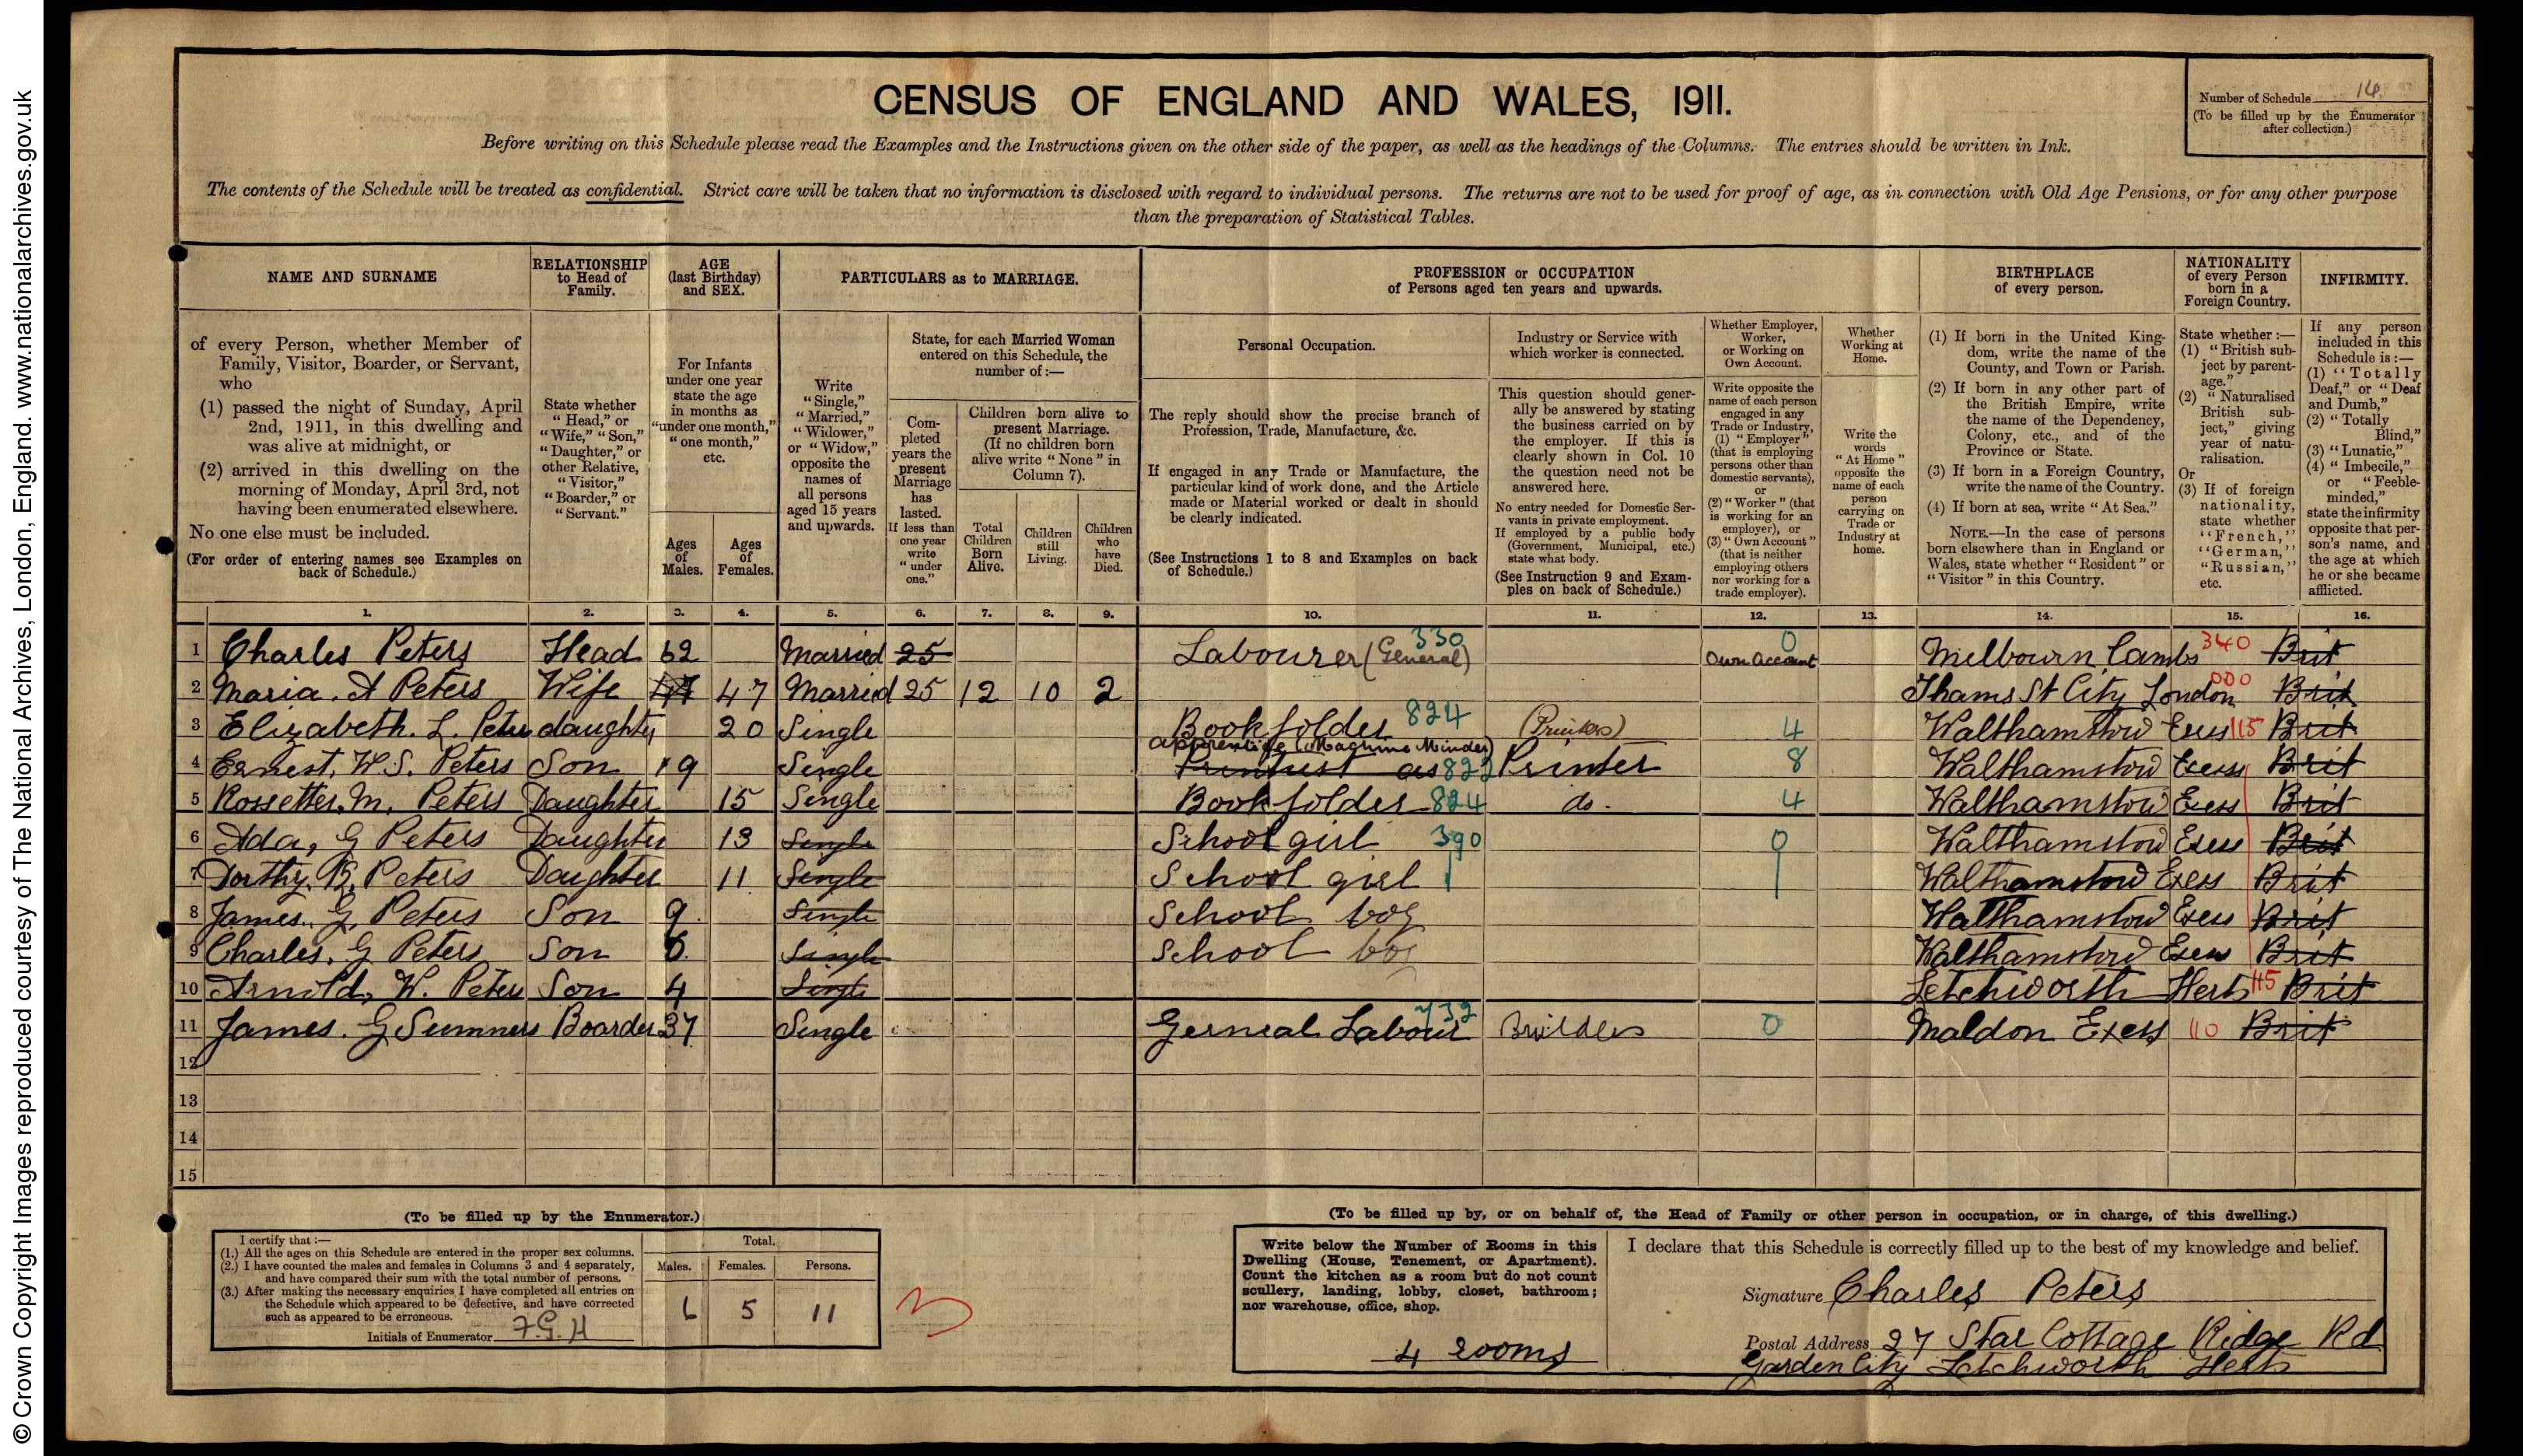 © Crown Copyright Images reproduced courtesy of The National Archives, London, England. www.nationalarchives.gov.uk
CENSUS OF ENGLAND AND WALES, 1911.
Number of Schedule 14
(To be filled up by the Enumerator after collection.)
Before writing on this Schedule please read the Examples and the Instructions given on the other side of the paper, as well as the headings of the Columns. The entries should be written in Ink.
The contents of the Schedule will be treated as confidential. Strict care will be taken that no information is disclosed with regard to individual persons. The returns are not to be used for proof of age, as in connection with Old Age Pensions, or for any other purpose
than the preparation of Statistical Tables.
NAME AND SURNAME
of every Person, whether Member of
Family, Visitor, Boarder, or Servant,
who
(1) passed the night of Sunday, April
2nd, 1911, in this dwelling and
was alive at midnight, or
(2) arrived in this dwelling on the
morning of Monday, April 3rd, not
having been enumerated elsewhere.
No one else must be included.
(For order of entering names see Examples on
back of Schedule.)
RELATIONSHIP
to Head of
Family.
State whether
"Head," or
"Wife," "Son,"
"Daughter," or
other Relative,
"Visitor,"
"Boarder," or
"Servant."
AGE
(last Birthday)
and SEX.
For Infants
under one year
state the age
in months as
"under one month,"
"one month,"
etc.
Ages
of
Males.
Ages
of
Females.
PARTICULARS as to MARRIAGE.
Write
"Single,"
"Married,"
"Widower,"
or "Widow,"
opposite the
names of
all persons
aged 15 years
and upwards.
State, for each Married Woman
entered on this Schedule, the
number of:—
Com-
pleted
years the
present
Marriage
has
lasted.
If less than
one year
write
"under
one."
Children born alive to
present Marriage.
(If no children born
alive write "None" in
Column 7).
Total
Children
Born
Alive.
Children
still
Living.
Children
who
have
Died.
PROFESSION or OCCUPATION
of Persons aged ten years and upwards.
Personal Occupation.
The reply should show the precise branch of
Profession, Trade, Manufacture, &c.
If engaged in any Trade or Manufacture, the
particular kind of work done, and the Article
made or Material worked or dealt in should
be clearly indicated.
(See Instructions 1 to 8 and Examples on back
of Schedule.)
Industry or Service with
which worker is connected.
This question should gener-
ally be answered by stating
the business carried on by
the employer. If this is
clearly shown in Col. 10
the question need not be
answered here.
No entry needed for Domestic Ser-
vants in private employment.
If employed by a public body
(Government, Municipal, etc.)
state what body.
(See Instruction 9 and Exam-
ples on back of Schedule.)
Whether Employer,
Worker,
or Working on
Own Account.
Write opposite the
name of each person
engaged in any
Trade or Industry,
(1) "Employer"
(that is employing
persons other than
domestic servants),
or
(2) "Worker" (that
is working for an
employer), or
(3) "Own Account"
(that is neither
employing others
nor working for a
trade employer).
Whether
Working at
Home.
Write the
words
"At Home"
opposite the
name of each
person
carrying on
Trade or
Industry at
home.
BIRTHPLACE
of every person.
(1) If born in the United King-
dom, write the name of the
County, and Town or Parish.
(2) If born in any other part of
the British Empire, write
the name of the Dependency,
Colony, etc., and of the
Province or State.
(3) If born in a Foreign Country,
write the name of the Country.
(4) If born at sea, write "At Sea."
NOTE.—In the case of persons
born elsewhere than in England or
Wales, state whether "Resident" or
"Visitor" in this Country.
NATIONALITY
of every Person
born in a
Foreign Country.
State whether :—
(1) "British sub-
ject by parent-
age."
(2) "Naturalised
British sub-
ject," giving
year of natu-
ralisation.
Or
(3) If of foreign
nationality,
state whether
"French,"
"German,"
"Russian,"
etc.
INFIRMITY.
If any person
included in this
Schedule is :—
(1) "Totally
Deaf," or "Deaf
and Dumb,"
(2) "Totally
Blind,"
(3) "Lunatic,"
(4) "Imbecile,"
or "Feeble-
minded,"
state the infirmity
opposite that per-
son's name, and
the age at which
he or she became
afflicted.
1. 2. 3. 4. 5. 6. 7. 8. 9. 10. 11. 12. 13. 14. 15. 16.
1 Charles Peters Head 62 Married 25 Labourer (General) 330 Own Account 0 Milbourn Cambs 340 Brit
2 Maria. A Peters Wife 47 Married 25 12 10 2 Thams St City London 000 Brit
3 Elizabeth. L. Peters daughter 20 Single Book folder 824 (Printers) 4 Walthamstow Exess 115 Brit
apprentice (Machine Minder)
4 Ernest. W.S. Peters Son 19 Single as 822 Printer 8 Walthamstow Exess Brit
5 Rossetter. M. Peters Daughter 15 Single Book folder 824 do. 4 Walthamstow Exess Brit
6 Ada, G Peters Daughter 13 Single School girl 390 0 Walthamstow Exess Brit
7 Dorthy. B. Peters Daughter 11 Single School girl Walthamstow Exess Brit
8 James. G. Peters Son 9. Single School boy Walthamstow Exess Brit
9 Charles. G Peters Son 6. Single School boy Walthamstow Exess Brit
10 Arnold, W. Peters Son 4 Single Letchworth Herts 115 Brit
11 James. G Sumners Boarder 37 Single Gerneal Labour Builders 0 Maldon Exess 110 Brit
12
13
14
15
(To be filled up by the Enumerator.)
I certify that :—
(1.) All the ages on this Schedule are entered in the proper sex columns.
(2.) I have counted the males and females in Columns 3 and 4 separately,
and have compared their sum with the total number of persons.
(3.) After making the necessary enquiries I have completed all entries on
the Schedule which appeared to be defective, and have corrected
such as appeared to be erroneous.
Initials of Enumerator F.G.H
Total.
Males. Females. Persons.
6 5 11
3
(To be filled up by, or on behalf of, the Head of Family or other person in occupation, or in charge, of this dwelling.)
Write below the Number of Rooms in this
Dwelling (House, Tenement, or Apartment).
Count the kitchen as a room but do not count
scullery, landing, lobby, closet, bathroom;
nor warehouse, office, shop.
4 rooms
I declare that this Schedule is correctly filled up to the best of my knowledge and belief.
Signature Charles Peters
Postal Address 27 Star Cottage Ridge Rd
Garden City Letchworth Herts